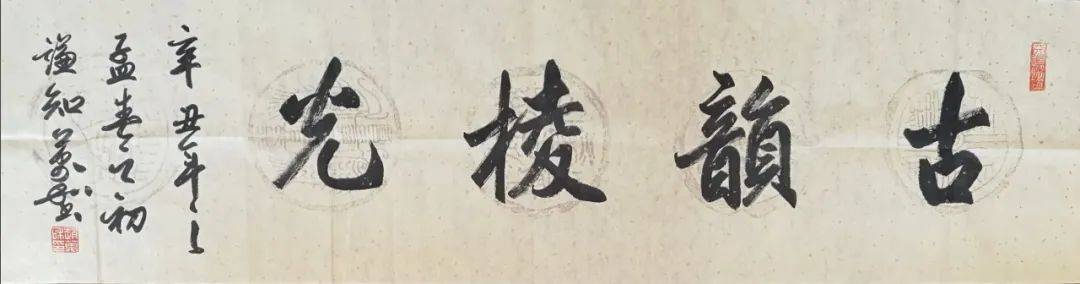 古韻棱光
辛丑年之
孟春之初
謙知